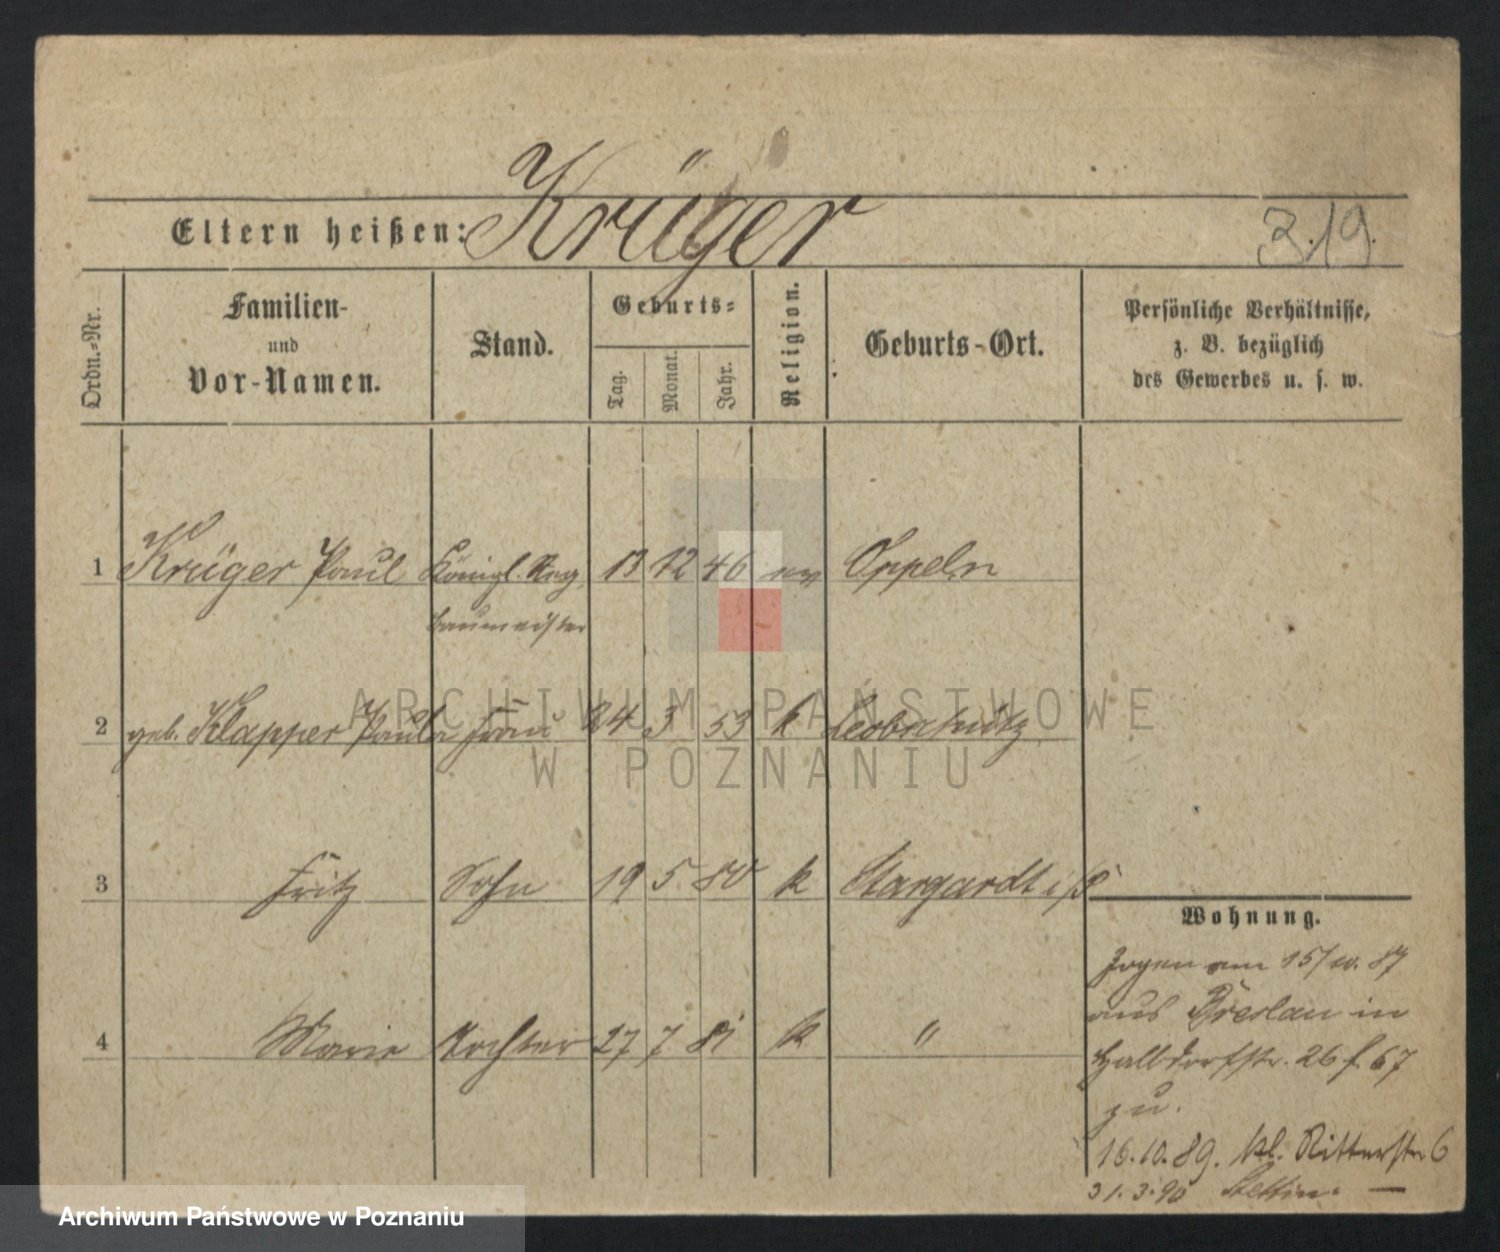 Eltern heißen: Krüger
3.19.
Ordn.-Nr.
Familien-
und
Vor-Namen.
Stand.
Geburts-
Tag.
Monat.
Jahr.
Religion.
Geburts-Ort.
Persönliche Verhältnisse,
z. B. bezüglich
des Gewerbes u. s. w.
1 Krüger Paul Königl. Reg. 13 12 46 ev Oppeln
Baumeister
2 geb. Klapper Paula Frau 24 3 53 k Leobschütz
3 Fritz Sohn 19 5 80 k Stargardt i/P
4 Marie Tochter 27 7 81 k "
Wohnung.
Zogen am 15/10. 87
aus Breslau in
Halbdorfstr. 26 f. 67
zu.
16.10.89. kl. Ritterstr. 6
31.3.90 Stettin. —
ARCHIWUM PAŃSTWOWE
W POZNANIU
Archiwum Państwowe w Poznaniu